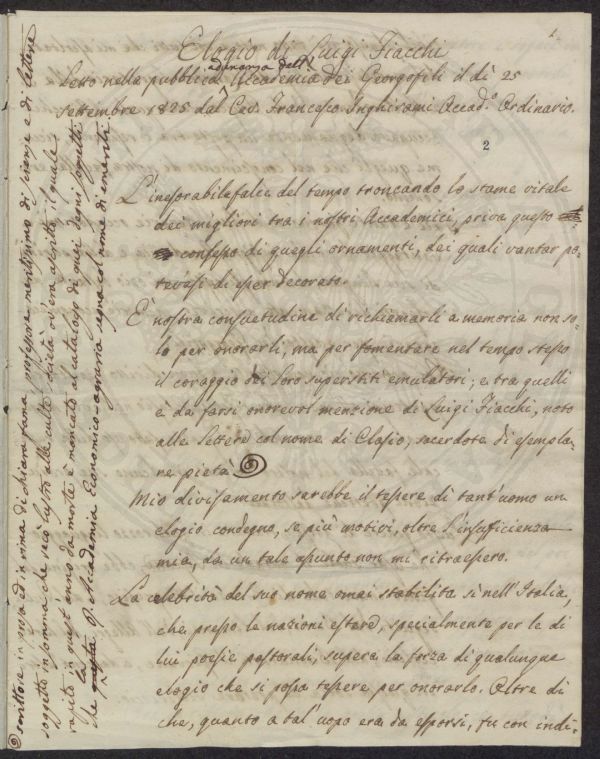 1
Elogio di Luigi Fiacchi
adunanza dell'
Letto nella pubblica Accademia dei Georgofili il dì 25
Settembre 1825 dal Cav. Francesco Inghirami Accad.º Ordinario.
2
L'inesorabile falce del tempo troncando lo stame vitale
dei migliori tra i nostri Accademici, priva questo
consesso di quegli ornamenti, dei quali vantar po-
tevasi di esser decorato.
È nostra consuetudine di richiamarli a memoria non so-
lo per onorarli, ma per fomentare nel tempo stesso
il coraggio dei loro superstiti emulatori; e tra quelli
è da farsi onorevol menzione di Luigi Fiacchi, noto
alle lettere col nome di Clasio, sacerdote di esempla-
re pietà
Mio divisamento sarebbe il tessere di tant'uomo un
elogio condegno, se più motivi, oltre l'insufficienza
mia, da un tale assunto non mi ritraessero.
La celebrità del suo nome omai stabilita sì nell'Italia,
che presso le nazioni estere, specialmente per le di
lui poesie pastorali, supera la forza di qualunque
elogio che si possa tessere per onorarlo. Oltre di
che, quanto a tal'uopo era da esporsi, fu con indi-
scrittore in prosa ed in rima di chiara fama, professore meritissimo di scienze e di lettere
soggetto insomma che recò lustro alla culta società ov'era ascritto, il quale
rapito in quest'anno da morte è mancato al catalogo di quei degni soggetti
che questa I. e R. Accademia Economico-agraria segna col nome di emeriti